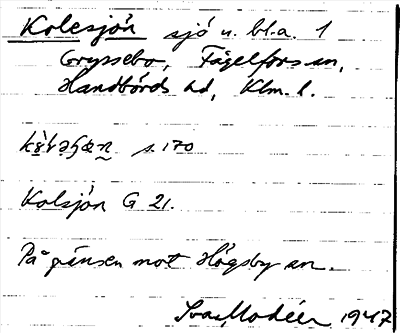 Kolesjön sjö u. bl.a. 1
Gryssebo, Fågelfors sn,
Handbörds hd, Klm. l.
s. 170
Kolsjön G 21.
På gränsen mot Högsby sn.
Ivar Modéer 1947